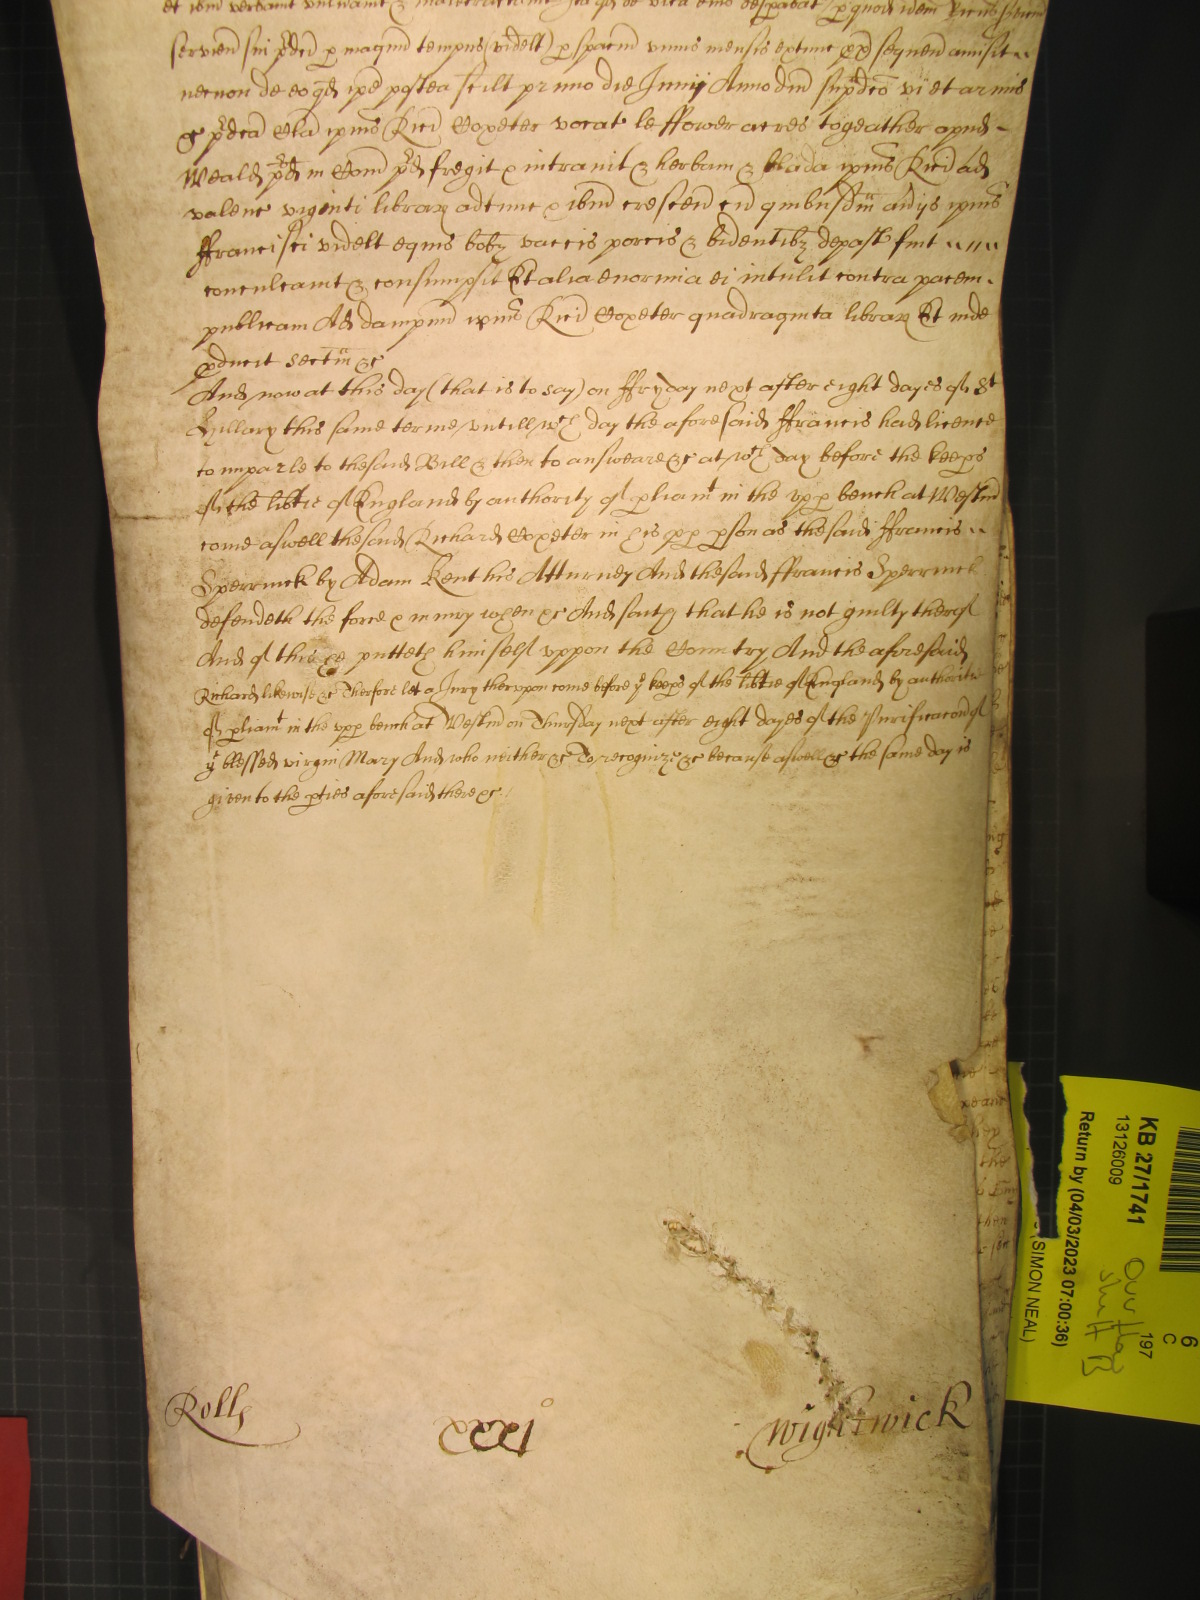 et ibm verbavit vulneravit & maletractavit Ita qd de vita eius desperabat p quod idem Ricus servic
serviend sui pdcd p magnu tempus (videlt) p spaciu unius mensis extunc px sequen amisit
necnon de eo qd ipe postea scilt primo die Junij Anno dni supdco vi et armis
&c pdca Cla ipius Rici Coxeter vocat le ffower acres togeather apud
Weald pd in Com pd fregit & intravit & herbam & blada ipius Rici ad
valenc viginti librar adtunc & ibm crescen cu quibusdm aviys ipius
ffrancisci videlt equis bobz vaccis porcis & bidentibz depast fuit
conculcavit & consumpsit Et alia enormia ei intulit contra pacem
publicam Ad dampnu ipius Rici Coxeter quadraginta librar Et inde
pducit sectm &c
And now at this day (that is to say) on ffryday next after eight dayes of St
Hillary this same terme untill wch day the aforesaid ffrancis had licence
to imparle to the said Bill & then to answeare &c at wch day before the keeps
of the libtie of England by authority of pliamt in the upp bench at Westm
come aswell the said Richard Coxeter in his pp pson as the said ffrancis
Sperrinck by Adam Kent his Atturney And the said ffrancis Sperrinck
defendeth the force & iniury when &c And saith that he is not guilty therof
And of this he putteth himself uppon the Countrry And the aforesaid
Richard likewise &c Therfore let a Jury therupon come before ye keeps of the libtie of England by authoritie
of pliamt in the upp bench at Westm on Thursday next after eight dayes of the Purificacon of
ye blessed virgin Mary And who neither &c To recognize &c because aswell &c the same day is
given to the pties aforesaid there &c
Rolle
Wightwick
KB 27/1741
13126009
Return by (04/03/2023 07:00:36)
(SIMON NEAL)
6
C
197